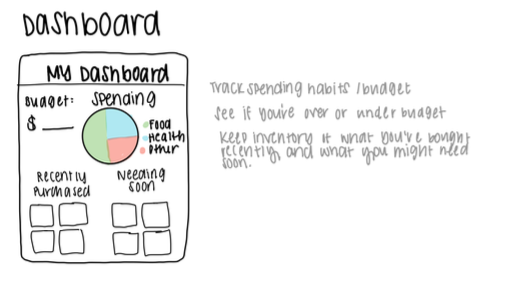 Dashboard
My Dashboard
Budget:
$
Spending
Food
Health
Other
Recently
Purchased
Needing
Soon
Track spending habits / budget
See if you're over or under budget
Keep inventory if what you've bought
recently, and what you might need
soon.